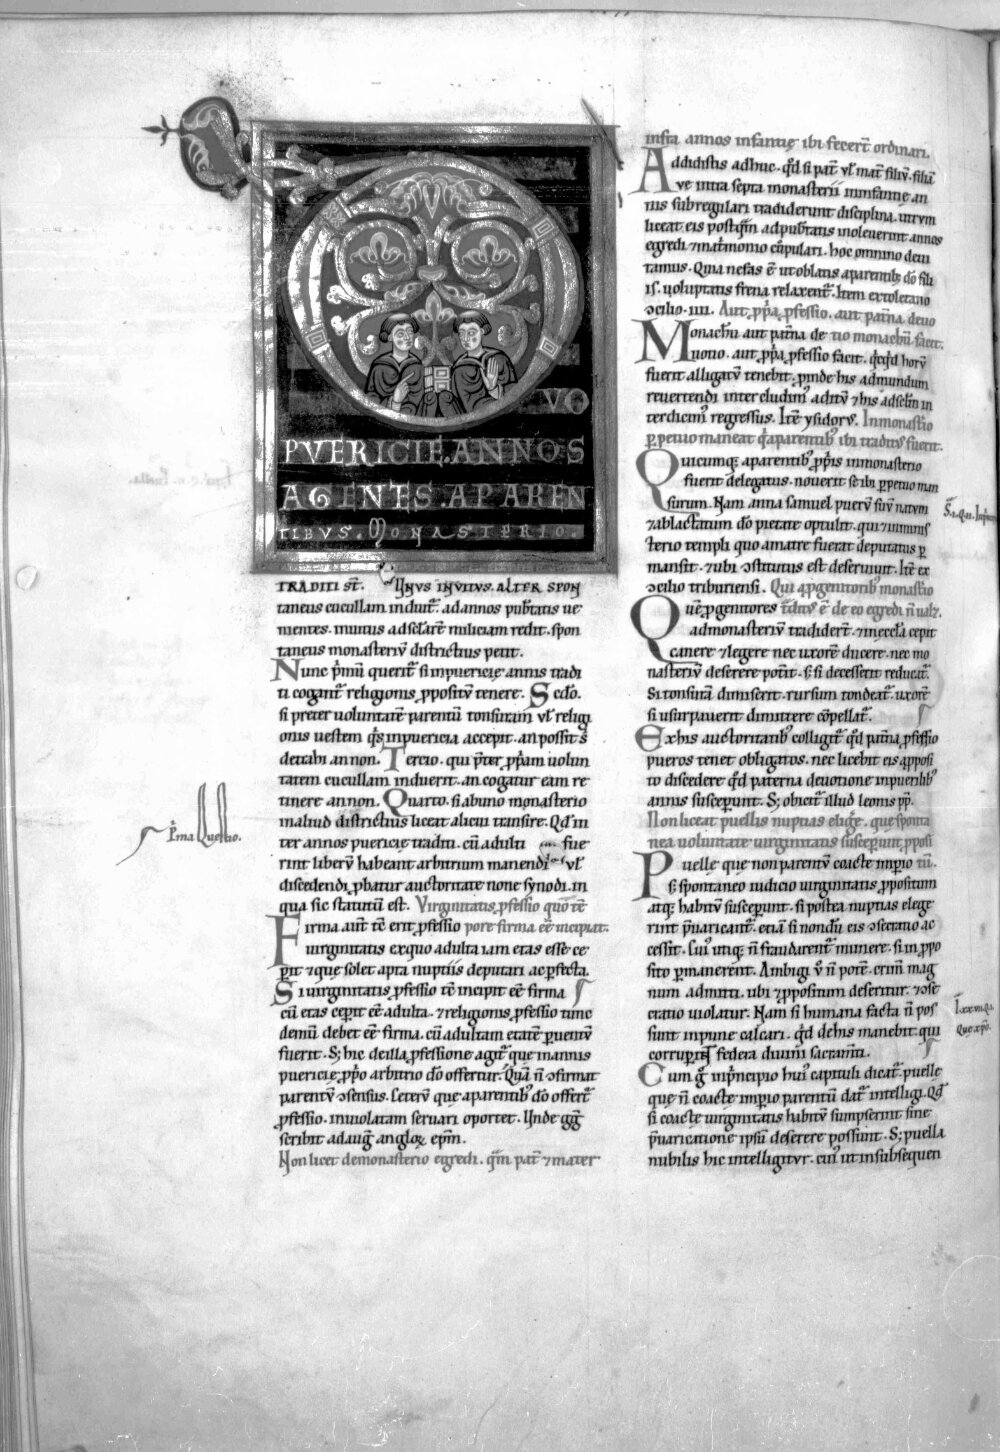 DVO
PVERICIE. ANNOS
AGENTES. A PAREN
TIBVS. MONASTERIO.
TRADITI ST̄. Unus INVITVS. ALTER SPON
taneus cucullam induit᷑. ad annos pub̄tatis ue
nientes. inuitus ad sc̄larē miliciam redit. spon
taneus monasteriū districtius petit.
Nunc p̄mū querit᷑ si in puericie annis tradi
ti cogant᷑ religionis ꝓpositū tenere. Scdo.
si preter uoluntatē parentū tonsuram ul̄ religi
onis uestem q̄s in puericia accepit. an possit ī
detrahi an non. Tercio. qui p̄ter ꝓpam uolun
tatem cucullam induerit. an cogatur eam re
tinere an non. Quarto. si ab uno monasterio
in aliud districtius liceat alicui transire. Qd̄ in
ter annos puericie traditi. cū adulti fue
rint liberū habeant arbitrium manendi ul̄
discedendi ꝓbatur auctoritate none synodi. in
qua sic statutū est. Virginitatis ꝓfessio quo tē
Firma aut̄ tē erit ꝓfessio pore firma eē incipiat.
uirginitatis ex quo adulta iam etas esse ce
pit ⁊ que solet apta nuptiis deputari ac ꝑfecta.
Si uirginitatis ꝓfessio tē incipit eē firma
cū etas ceperit eē adulta. ⁊ religionis ꝓfessio tunc
demū debet eē firma. cū adultam etatē ꝑuentū
fuerit. S; hic de illa ꝓfessione agit᷑ que in annis
puericie ꝓp̄o arbitrio dō offertur. Quā n̄ ↄfirmat
parentū ↄsensus. Ceterū que a parentibꝰ dō offert᷑
ꝓfessio. inuiolatam seruari oportet. Unde gg̅
scribit ad aug̅ angloꝝ ep̄m.
Non licet de monasterio egredi. q̄m pat̄ ⁊ mater
infra annos infantię ibi fecert̄ ordinari.
Addidistis adhuc. qd̄ si pat̄ ul̄ mat̄ filiū. filiā
ue intra septa monasterii in infantię an
nis sub regulari tradiderunt disciplina. utrum
liceat eis postq̄m ad pub̄tatis inoleuerint annos
egredi ⁊ mat̄monio cōpulari. hoc omnino deui
tamus. Quia nefas ē ut oblatis a parentibꝰ dō fili
is. uoluptatis frena relaxent᷑. Item ex toletano
ↄcilio .IIII. Aut ꝓp̄a ꝓfessio. aut pat̄na deuo
Monachū aut pat̄na de tio monachū facit.
uotio. aut ꝓp̄a ꝓfessio facit. q̄cqd horū
fuerit alligatū tenebit. ꝓinde his ad mundum
reuertendi intercludimꝰ aditū ⁊ his ad sclm̄ in
terdicimꝰ regressus. Itē ysidorꝰ. In monast̄io
ꝑpetuo maneat q̄ a parentibꝰ ibi traditꝰ fuerit.
Quicumqꝫ a parentibꝰ ꝓp̄is in monasterio
fuerit delegatus. nouerit se ibi ꝑpetuo man
surum. Nam anna samuel puerū suū natum
⁊ ablactatum dō pietate optulit. qui ⁊ in minis
terio templi quo a matre fuerat deputatus ꝑ
mansit. ⁊ ubi ↄstitutus est deseruiuit. Itē ex
ↄcilio triburiensi. Qui a ꝓgenitoribꝰ monast̄io
Quē ꝓgenitores t̄ditꝰ ē de eo egredi n̄ ualꝫ.
ad monasteriū tradidert̄. ⁊ in eccl̄a cepit
canere ⁊ legere nec uxorē ducere. nec mo
nasteriū deserere potit. s; si decesserit reducat᷑.
Si tonsurā dimiserit. rursum tondeat᷑. uxorē
si usurpauerit dimittere cōpellat᷑.
Ex his auctoritatibꝰ colligit᷑ qd̄ pat̄na ꝓfessio
pueros tenet obligatos. nec licebit eis a pposi
to discedere qd̄ paterna deuotione in puerilibꝰ
annis susceperunt. S; obicit᷑ illud leonis pp̄.
Non liceat puellis nuptias elige. que sponta
nea uoluntate uirginitatis susceperunt ꝓposi
Puelle que non parentū coacte imꝑio tū.
s; spontaneo iudicio uirginitatis ꝓpositum
atqꝫ habitū susceperunt. si postea nuptias elege
rint p̄uaricant᷑. etiā si nondū eis ↄsecratio ac
cessit. Cuiꝰ utiqꝫ n̄ fraudarent᷑ munere. si in ꝓpo
sito ꝑmanerent. Ambigi ū n̄ pote. crim̄ mag
num admitti. ubi ⁊ ꝓpositum deseritur. ⁊ ↄse
cratio uiolatur. Nam si humana facta n̄ pos
sunt inpune calcari. qd̄ de his manebit. qui
corruperint federa diuini sacramti.
Cum g̊ in p̄ncipio huiꝰ capituli dicat᷑. puelle
que n̄ coacte imꝑio parentū dat᷑ intelligi. Qd̄
si coacte uirginitatis habitū sumpserint sine
p̄uaricatione ipsū deserere possunt. S; puella
nubilis hic intelligitur. cuiꝰ ut in subsequen
P̄ma Questio.